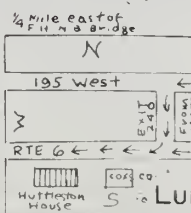 ¼ Mile east of
F H N B Bridge
N
195 West
W
EXIT
240
FROM
RTE 6
Huttleston
House
S
LU